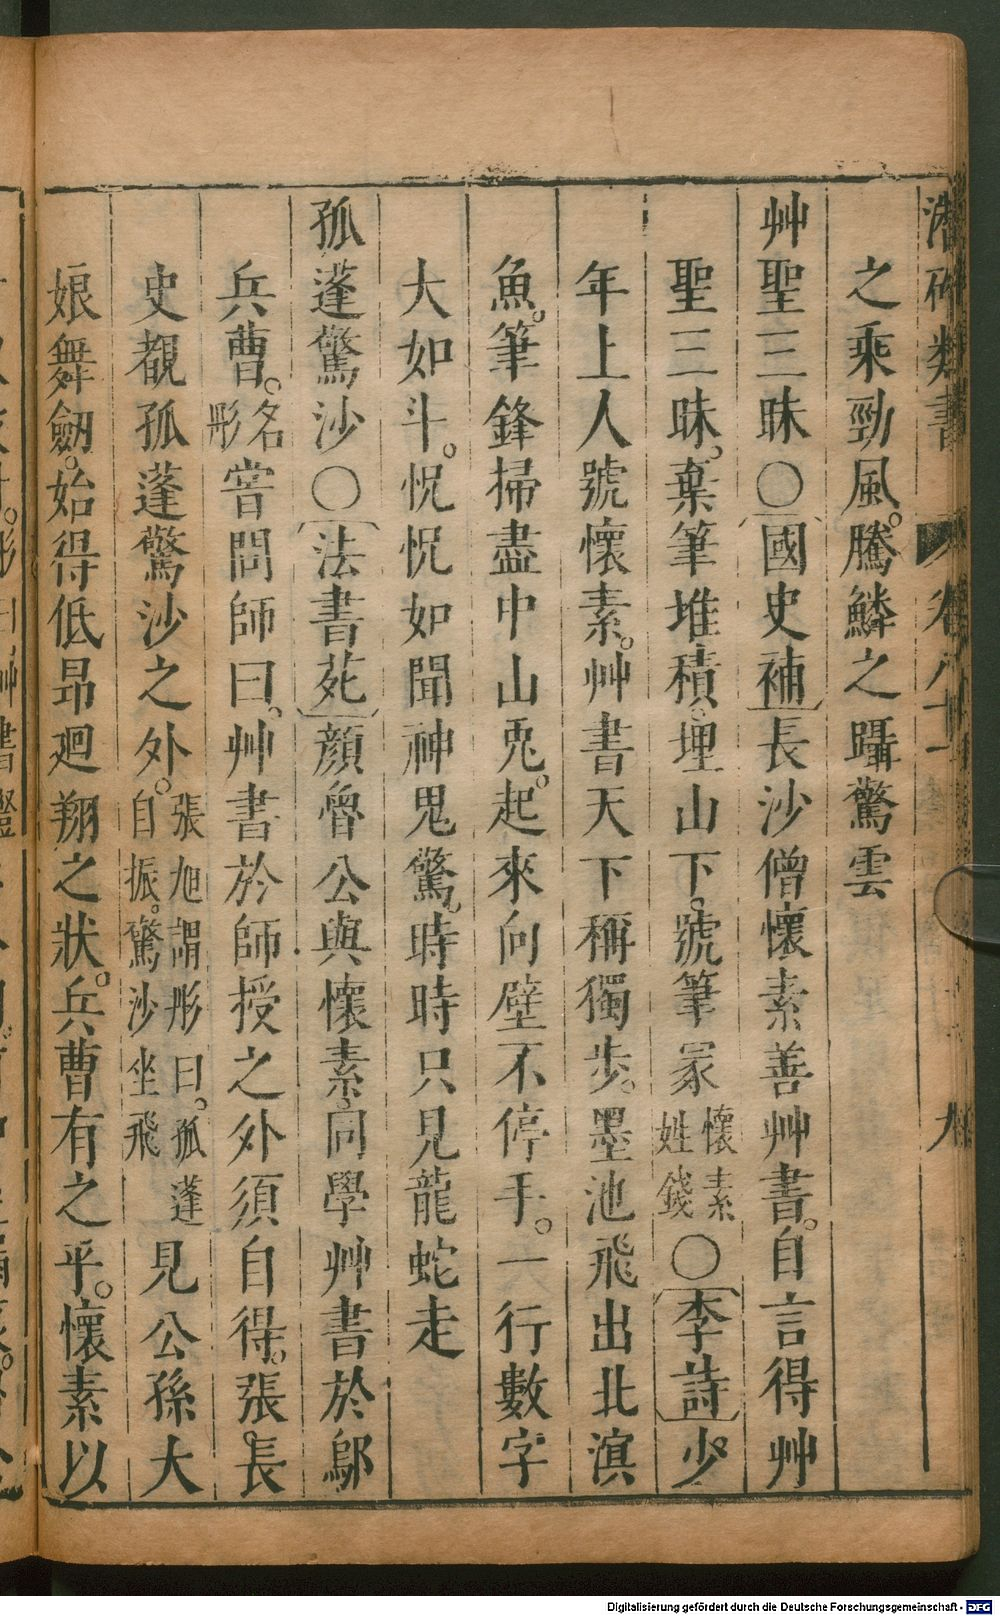 潛確類書 卷八十一 九
之乘勁風騰鱗之躡驚雲
艸聖三昧〇國史補長沙僧懷素善艸書。自言得艸
聖三昧。棄筆堆積。埋山下。號筆冢懷素姓錢〇李詩少
年上人號懷素。艸書天下稱獨步。墨池飛出北溟
魚。筆鋒掃盡中山兎。起來向壁不停手。一行數字
大如斗。怳怳如聞神鬼驚。時時只見龍蛇走
孤蓬驚沙〇法書苑顏魯公與懷素。同學艸書於鄔
兵曹。名彤嘗問師曰。艸書於師授之外須自得。張長
史覩孤蓬驚沙之外。張旭謂彤曰。孤蓬自振。驚沙坐飛見公孫大
娘舞劒。始得低昂廻翔之狀。兵曹有之乎。懷素以
Digitalisierung gefördert durch die Deutsche Forschungsgemeinschaft - DFG